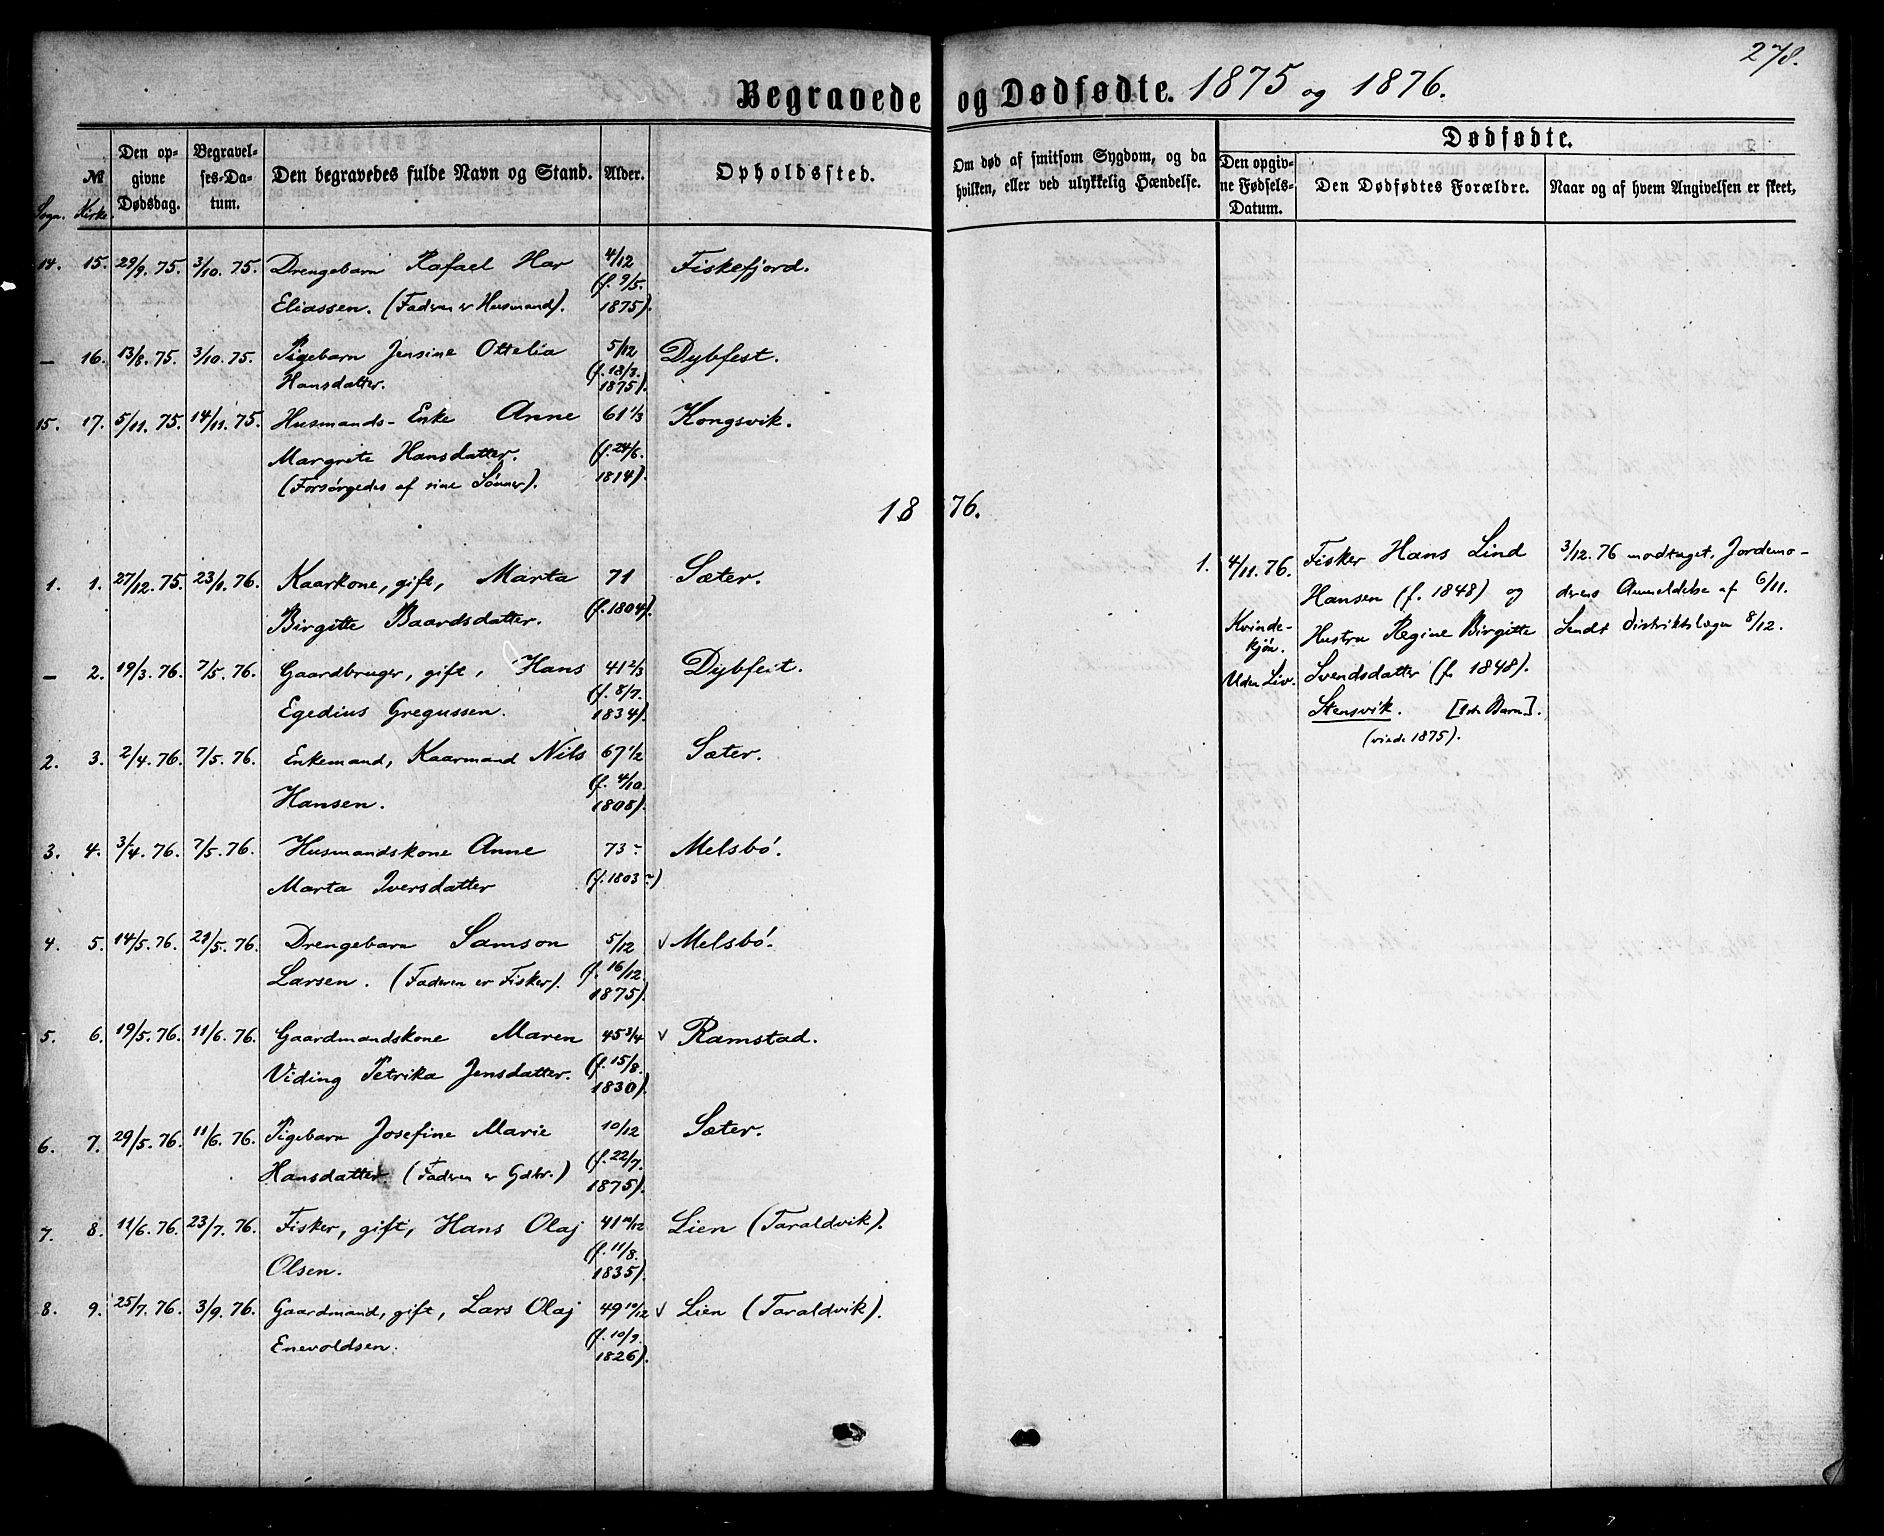 278.
Begravede og Dødfødte. 1875 og 1876.
Sogn. № Kirke. Den opgivne Dødsdag. Begravelses-Datum. Den begravedes fulde Navn og Stand. Alder. Opholdssted. Om død af smitsom Sygdom, og da hvilken, eller ved ulykkelig Hændelse.
Dødfødte.
Den opgivne Fødsels-Datum. Den Dødfødtes Forældre. Naar og af hvem Angivelsen er skeet,
14. 15. 29/9. 75. 3/10. 75. Drengebarn Rafael Har 4/12 Fiskefjord.
(f. 9/5.
Eliassen. (Faderen er Husmand). 1875).
— 16. 13/8. 75. 3/10. 75. Pigebarn Jensine Ottelia 5/12 Dybfest.
Hansdatter. (f. 18/3. 1875).
15. 17. 5/11. 75. 14/11. 75. Husmands-Enke Anne 61 1/3 Kongsvik.
Margrete Hansdatter. (f. 24/6.
(Forsørgedes af sine Sønner). 1814).
1876.
1. 1. 27/12. 75. 23/1. 76. Kaarkone, gift, Marta 71 Sæter.
Birgitte Baardsdatter. (f. 1804).
— 2. 19/3. 76. 7/5. 76. Gaardbruger, gift, Hans 41 2/3 Dybfest.
(f. 8/7.
Egedius Gregussen. 1834).
2. 3. 2/4. 76. 7/5. 76. Enkemand, Kaarmand Nils 67 1/2 Sæter.
(f. 4/10.
Hansen. 1808).
3. 4. 3/4. 76. 7/5. 76. Husmandskone Anne 73 Melsbö.
Marta Iversdatter (f. 1803)
4. 5. 14/5. 76. 21/5. 76. Drengebarn Samson 5/12 v Melsbö.
(f. 16/12.
Larsen. (Faderen er Fisker). 1875).
5. 6. 19/5. 76. 11/6. 76. Gaardmandskone Maren 45 3/4 v Ramstad.
(f. 15/8.
Viding Petrika Jensdatter. 1830).
6. 7. 29/5. 76. 11/6. 76. Pigebarn Josefine Marie 10/12 Sæter.
(f. 22/7.
Hansdatter (Faderen er Gdbr.) 1875).
7. 8. 11/6. 76. 23/7. 76. Fisker, gift, Hans Olaj 41 10/12 Lien (Taraldvik).
(f. 11/8.
Olsen. 1835).
8. 9. 25/7. 76. 3/9. 76. Gaardmand, gift, Lars Olaj 49 10/12 v Lien (Taraldvik).
(f. 10/9.
Enevoldsen. 1826).
1. 4/11. 76. Fisker Hans Lind 3/12. 76 modtaget, Jordemo-
Hansen (f. 1848) og derens Anmeldelse af 6/11.
Kvinde- Hustru Regine Birgitte Sendt Distriktslægen 8/12.
kjön.
Uden Liv. Svendsdatter (f. 1848).
Stensvik. [1ste Barn].
(viede 1875).